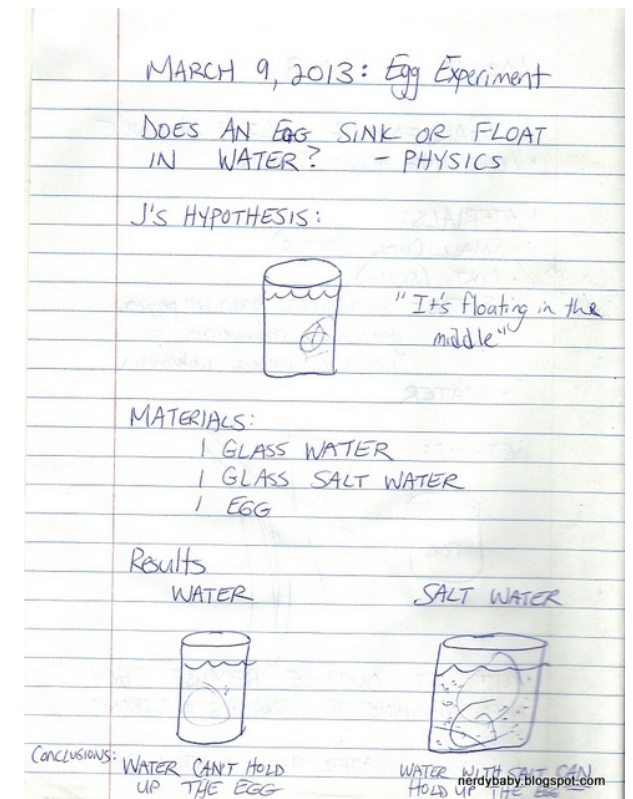 MARCH 9, 2013: Egg Experiment
DOES AN EGG SINK OR FLOAT
IN WATER? - PHYSICS
J'S HYPOTHESIS:
"It's floating in the
middle"
MATERIALS:
1 GLASS WATER
1 GLASS SALT WATER
1 EGG
Results
WATER SALT WATER
CONCLUSIONS:
WATER CAN'T HOLD
UP THE EGG
WATER WITH SALT CAN
HOLD UP THE
nerdybaby.blogspot.com